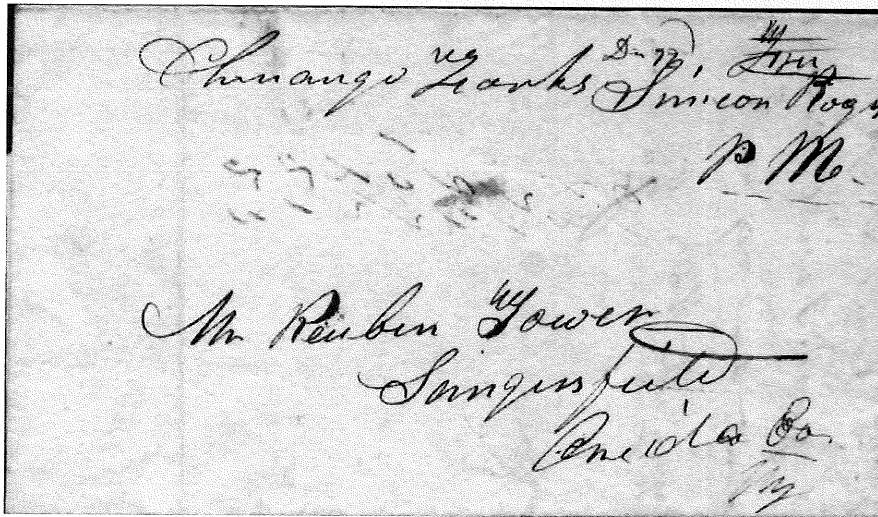 Chenango Forks Simeon Rog
P. M.
Mr Reuben Tower
Sangersfield
Oneida Co.
NY